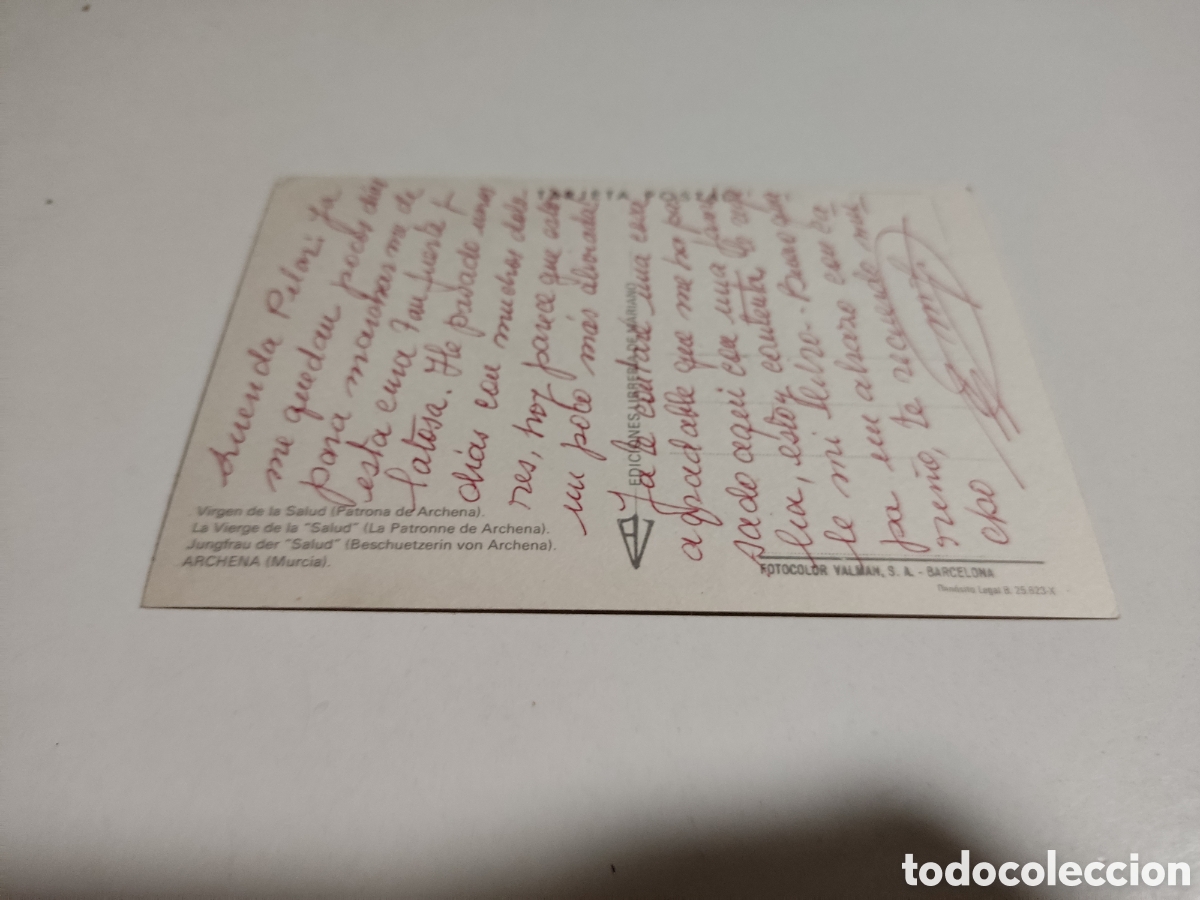 TARJETA POSTAL
Querida Pilori: ya
me quedan pocos dias
para marcharme de
esta cura tan fuerte y
latosa. He pasado unos
dias con muchos dolo-
res, hoy parece que estoy
un poco más aliviada.
Ya te contare una cosa
agradable que me ha pa-
sado aqui con una fami-
lia, estoy contenta
le mi libro. Bueno
pa un abrazo con
te recuerde
EDICIONES LIBRERIA DE MARIANO
Virgen de la Salud (Patrona de Archena).
La Vierge de la "Salud" (La Patronne de Archena).
Jungfrau der "Salud" (Beschuetzerin von Archena).
ARCHENA (Murcia).
FOTOCOLOR VALMAN, S. A. - BARCELONA
Depósito Legal B. 25.823-X
todocoleccion